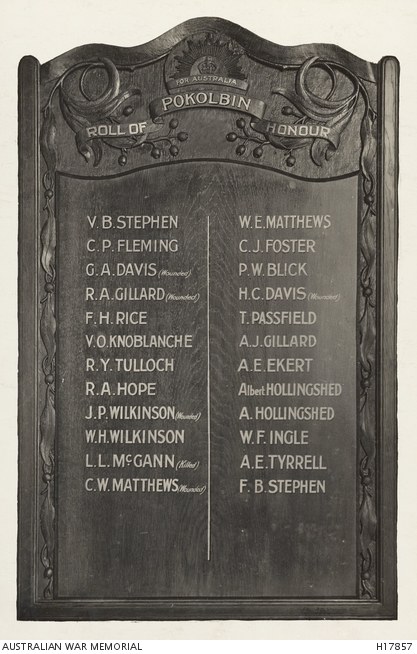 FOR AUSTRALIA
POKOLBIN
ROLL OF HONOUR
V. B. STEPHEN
C. P. FLEMING
G. A. DAVIS (Wounded)
R. A. GILLARD (Wounded)
F. H. RICE
V. O. KNOBLANCHE
R. Y. TULLOCH
R. A. HOPE
J. P. WILKINSON (Wounded)
W. H. WILKINSON
L. L. McGANN (Killed)
C. W. MATTHEWS (Wounded)
W. E. MATTHEWS
C. J. FOSTER
P. W. BLICK
H. C. DAVIS (Wounded)
T. PASSFIELD
A. J. GILLARD
A. E. EKERT
Albert HOLLINGSHED
A. HOLLINGSHED
W. F. INGLE
A. E. TYRRELL
F. B. STEPHEN
AUSTRALIAN WAR MEMORIAL
H17857